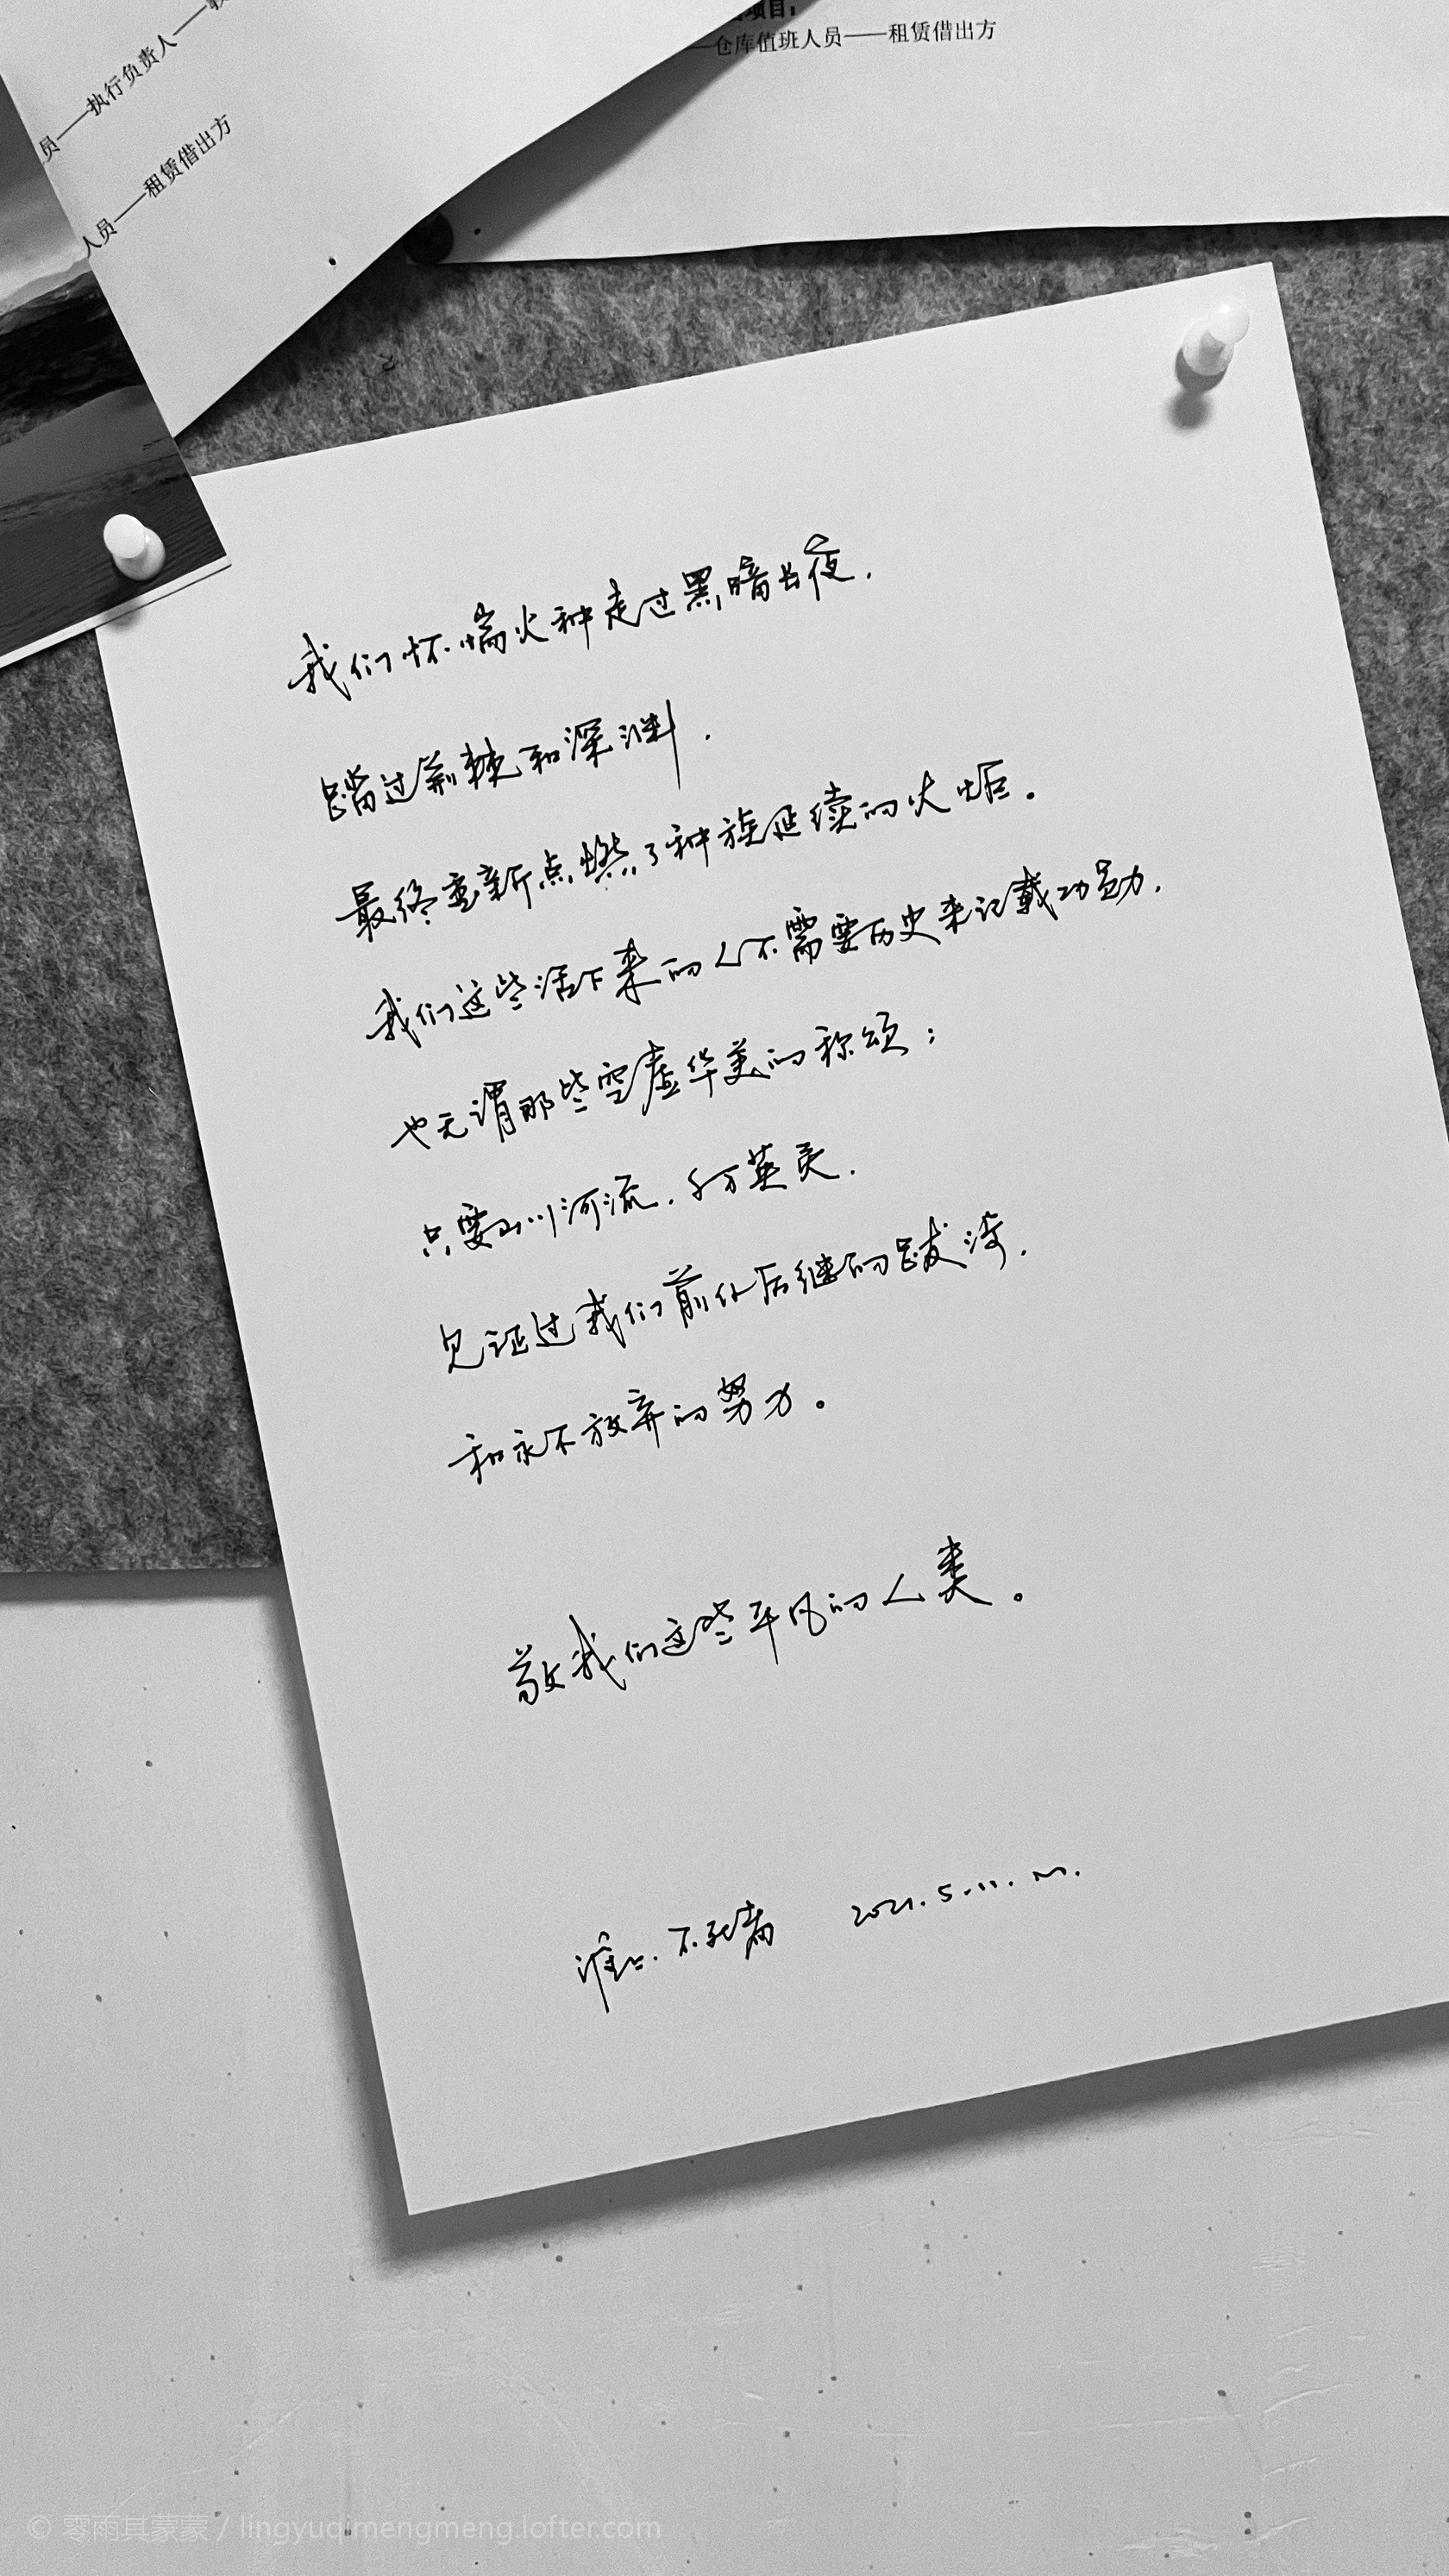 项目:
——仓库值班人员——租赁借出方
员——执行负责人——
人员——租赁借出方
我们怀揣火种走过黑暗长夜,
踏过荆棘和深渊,
最终重新点燃了种族延续的火炬。
我们这些活下来的人不需要历史来记载功勋,
也无谓那些空虚华美的称颂;
只要山川河流,千万英灵,
见证过我们前仆后继的跋涉,
和永不放弃的努力。
敬我们这些平凡的人类。
淮上.不死者 2021.5.11.
© 零雨其蒙蒙 / lingyuqimengmeng.lofter.com